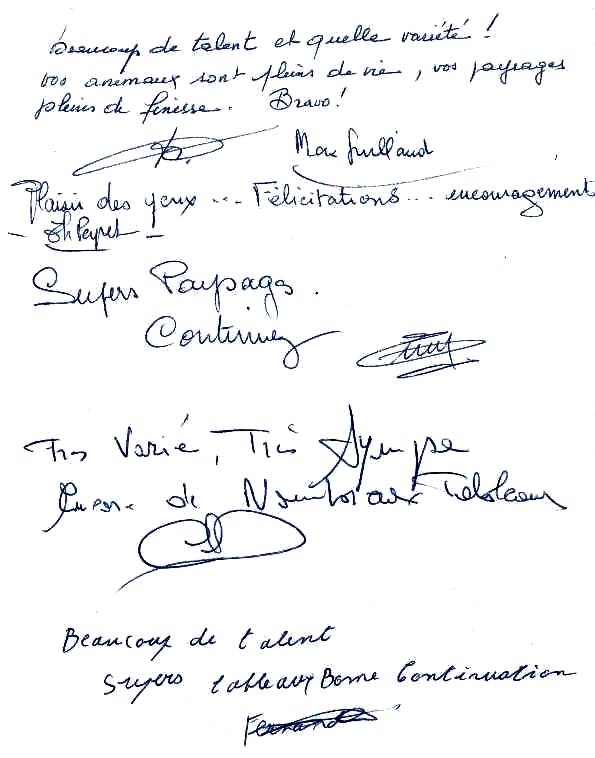 Beaucoup de talent et quelle variété !
vos animaux sont pleins de vie, vos paysages
pleins de finesse. Bravo !
Plaisir des yeux ... Félicitations ... encouragement
Supers Paysages.
Continuez
Très Varié, Très Sympa
de Nombreux Tableaux
Beaucoup de talent
Supers tableaux Bonne Continuation